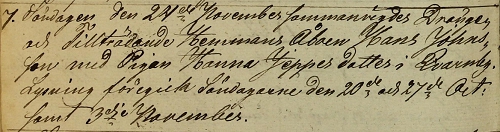 7. Söndagen den 24de November sammanvigdes Drängen
och Tillträdande Hemmans Åboen Hans Johns-
son med Pigan Hanna Jeppes datter i Qvarnby.
Lysning föregick Söndagarne den 20de och 27de Oct:
samt 3dje November.